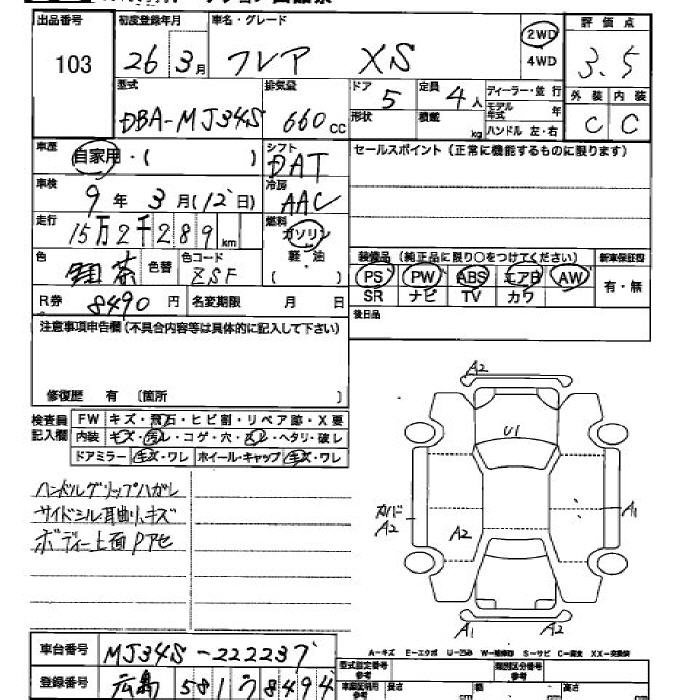 出品番号 初度登録年月 車名・グレード 評価点
103 26年3月 フレア XS 2WD 4WD 3.5
外装 内装
C C
型式 排気量 ドア 定員 ディーラー・並行
DBA-MJ34S 660cc 5 4人 モデル年式 年
形状 積載 kg ハンドル 左・右
車歴 自家用・( ) シフト セールスポイント(正常に機能するものに限ります)
DAT
車検 9年3月(12日) 冷房
AAC
走行 15万2千289km 燃料
ガソリン
軽・油
( )
色 茶 色替 色コード ZSF
装備品(純正品に限り○をつけてください) 新車保証書
PS PW ABS エアB AW 有・無
SR ナビ TV カワ
R券 8490円 名変期限 月 日
後日品
注意事項申告欄(不具合内容等は具体的に記入して下さい)
修復歴 有 〔箇所 〕
検査員記入欄 FW キズ・飛石・ヒビ割・リペア跡・X要
内装 キズ・汚レ・コゲ・穴・スレ・ヘタリ・破レ
ドアミラー キズ・ワレ ホイール・キャップ キズ・ワレ
ハンドルグリップハガレ
サイドシル耳曲り、キズ
ボディー上面Pアセ
A2
U1
A2
A2
A1
A1 A2
A-キズ E-エクボ U-凹み W-補修跡 S-サビ C-腐食 XX-交換済
車台番号 MJ34S-222237
型式指定番号 参考 類別区分番号 参考
登録番号 広島 581 う 8494
車庫証明用 参考 長さ 幅 高さ